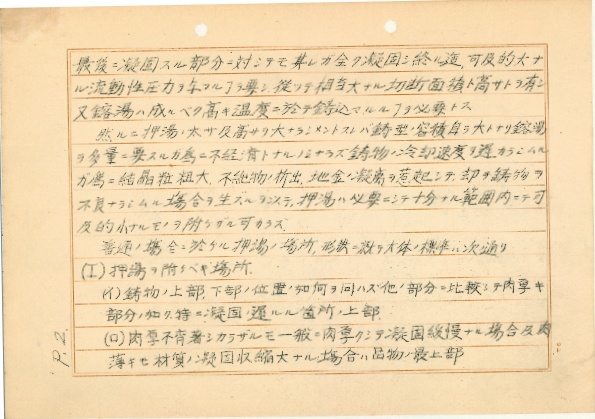 最後ニ凝固スル部分ニ対シテモ其レガ全ク凝固シ終ル迄可及的大ナ
ル流動性圧力ヲ与フル了ヲ要シ從ツテ相当大ナル切断面積ト高サトヲ有シ
又鎔湯ハ成ルベク高キ温度ニ於テ鋳込マルル了ヲ必要トス
然ルニ押湯ノ太サ及高サヲ大ナラシメントスレバ鋳型ノ容積自ラ大トナリ鎔湯
ヲ多量ニ要スルガ為ニ不経済トナルノミナラズ鋳物ノ冷却速度ヲ遅カラシムル
ガ為ニ結晶粒粗大、不純物ノ析出、地金ノ凝離ヲ惹起シテ却ヲ鋳物ヲ
不良ナラシムル場合ヲ生ズルヲ以テ、押湯ハ必要ニシテ十分ナル範囲内ニテ可
及的小ナルモノヲ附ケザル可カラズ
普通ノ場合ニ於ケル押湯ノ場所、形状ニ就テ大体ノ標準ハ次ノ通リ
(I) 押湯ヲ附スベキ場所
(イ) 鋳物ノ上部、下部ノ位置ノ如何ヲ問ハズ他ノ部分ニ比較シテ肉厚キ
部分ノ如ク特ニ凝固ノ遅ルル箇所ノ上部
(ロ) 肉厚不齊著シカラザルモ一般ニ肉厚クシテ凝固緩慢ナル場合及肉
薄キモ材質ノ凝固収縮大ナル場合ハ品物ノ最上部
P.2.